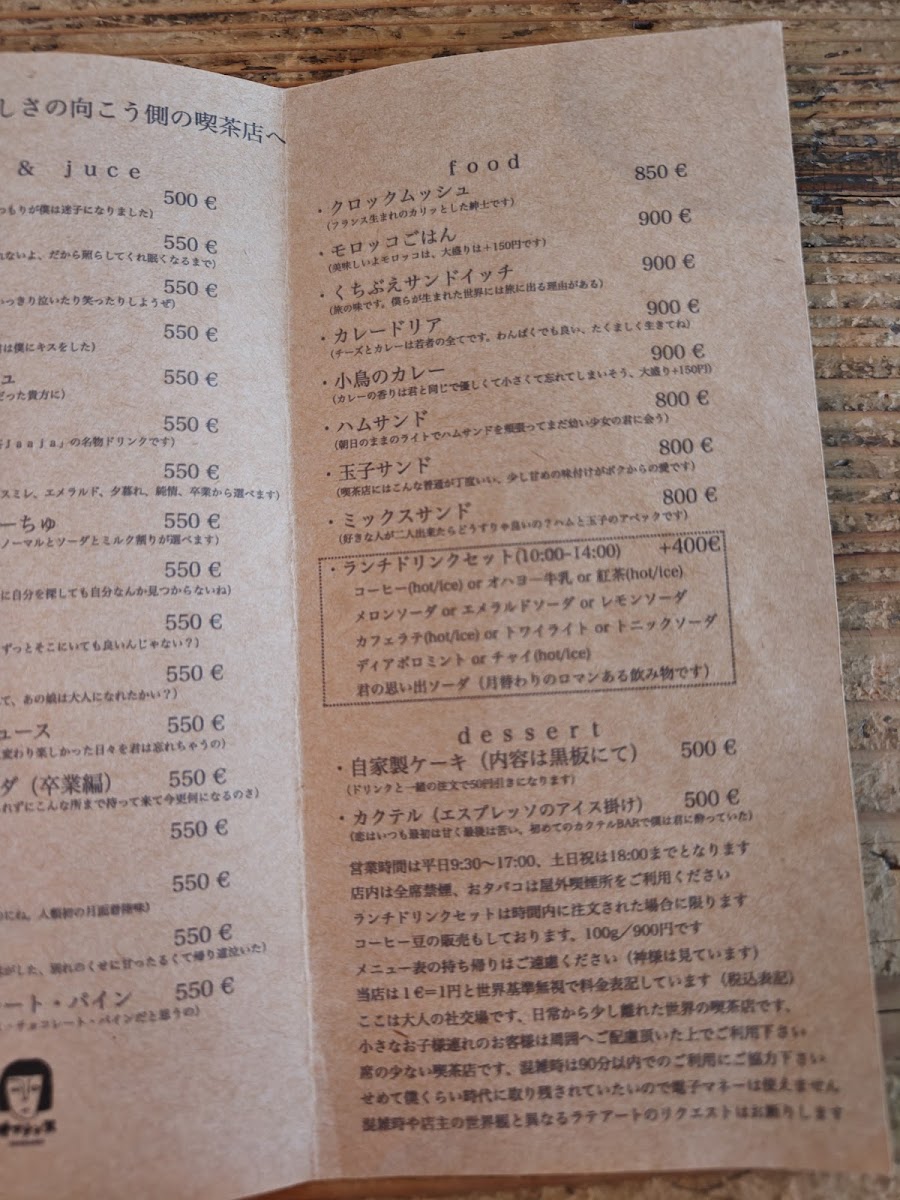 しさの向こう側の喫茶店へ
& juce
500 €
つもりが僕は迷子になりました)
550 €
れないよ、だから照らしてくれ眠くなるまで)
550 €
いっきり泣いたり笑ったりしようぜ)
550 €
は僕にキスをした)
ュ 550 €
だった貴方に)
550 €
の名物ドリンクです)
550 €
スミレ、エメラルド、夕暮れ、純情、卒業から選べます)
ーちゅ 550 €
ノーマルとソーダとミルク割りが選べます)
550 €
に自分を探しても自分なんか見つからないね)
550 €
ずっとそこにいても良いんじゃない?)
550 €
て、あの娘は大人になれたかい?)
ュース 550 €
変わり楽しかった日々を君は忘れちゃうの)
ダ (卒業編) 550 €
れずにこんな所まで持って来て今更何になるのさ)
550 €
550 €
にね、人類初の月面着陸味)
550 €
がした、別れのくせに甘ったるくて帰り道泣いた)
ート・パイン 550 €
・チョコレート・パインだと思うの)
food
・クロックムッシュ 850 €
(フランス生まれのカリッとした紳士です)
・モロッコごはん 900 €
(美味しいよモロッコは、大盛りは+150円です)
・くちぶえサンドイッチ 900 €
(旅の味です。僕らが生まれた世界には旅に出る理由がある)
・カレードリア 900 €
(チーズとカレーは若者の全てです。わんぱくでも良い、たくましく生きてね)
・小鳥のカレー 900 €
(カレーの香りは君と同じで優しくて小さくて忘れてしまいそう、大盛り+150円)
・ハムサンド 800 €
(朝日のままのライトでハムサンドを頬張ってまだ幼い少女の君に会う)
・玉子サンド 800 €
(喫茶店にはこんな普通が丁度いい、少し甘めの味付けがボクからの愛です)
・ミックスサンド 800 €
(好きな人が二人出来たらどうすりゃ良いの?ハムと玉子のアベックです)
・ランチドリンクセット(10:00-14:00) +400€
コーヒー(hot/ice) or オハヨー牛乳 or 紅茶(hot/ice)
メロンソーダ or エメラルドソーダ or レモンソーダ
カフェラテ(hot/ice) or トワイライト or トニックソーダ
ディアボロミント or チャイ(hot/ice)
君の思い出ソーダ (月替わりのロマンある飲み物です)
dessert
・自家製ケーキ (内容は黒板にて) 500 €
(ドリンクと一緒の注文で50円引きになります)
・カクテル (エスプレッソのアイス掛け) 500 €
(恋はいつも最初は甘く最後は苦い、初めてのカクテルBARで僕は君に酔っていた)
営業時間は平日9:30〜17:00、土日祝は18:00までとなります
店内は全席禁煙、おタバコは屋外喫煙所をご利用ください
ランチドリンクセットは時間内に注文された場合に限ります
コーヒー豆の販売もしております、100g/900円です
メニュー表の持ち帰りはご遠慮ください (神様は見ています)
当店は1€=1円と世界基準無視で料金表記しています (税込表記)
ここは大人の社交場です、日常から少し離れた世界の喫茶店です、
小さなお子様連れのお客様は周囲へご配慮頂いた上でご利用下さい
席の少ない喫茶店です、混雑時は90分以内でのご利用にご協力下さい
せめて僕くらい時代に取り残されていたいので電子マネーは使えません
混雑時や店主の世界観と異なるラテアートのリクエストはお断りします